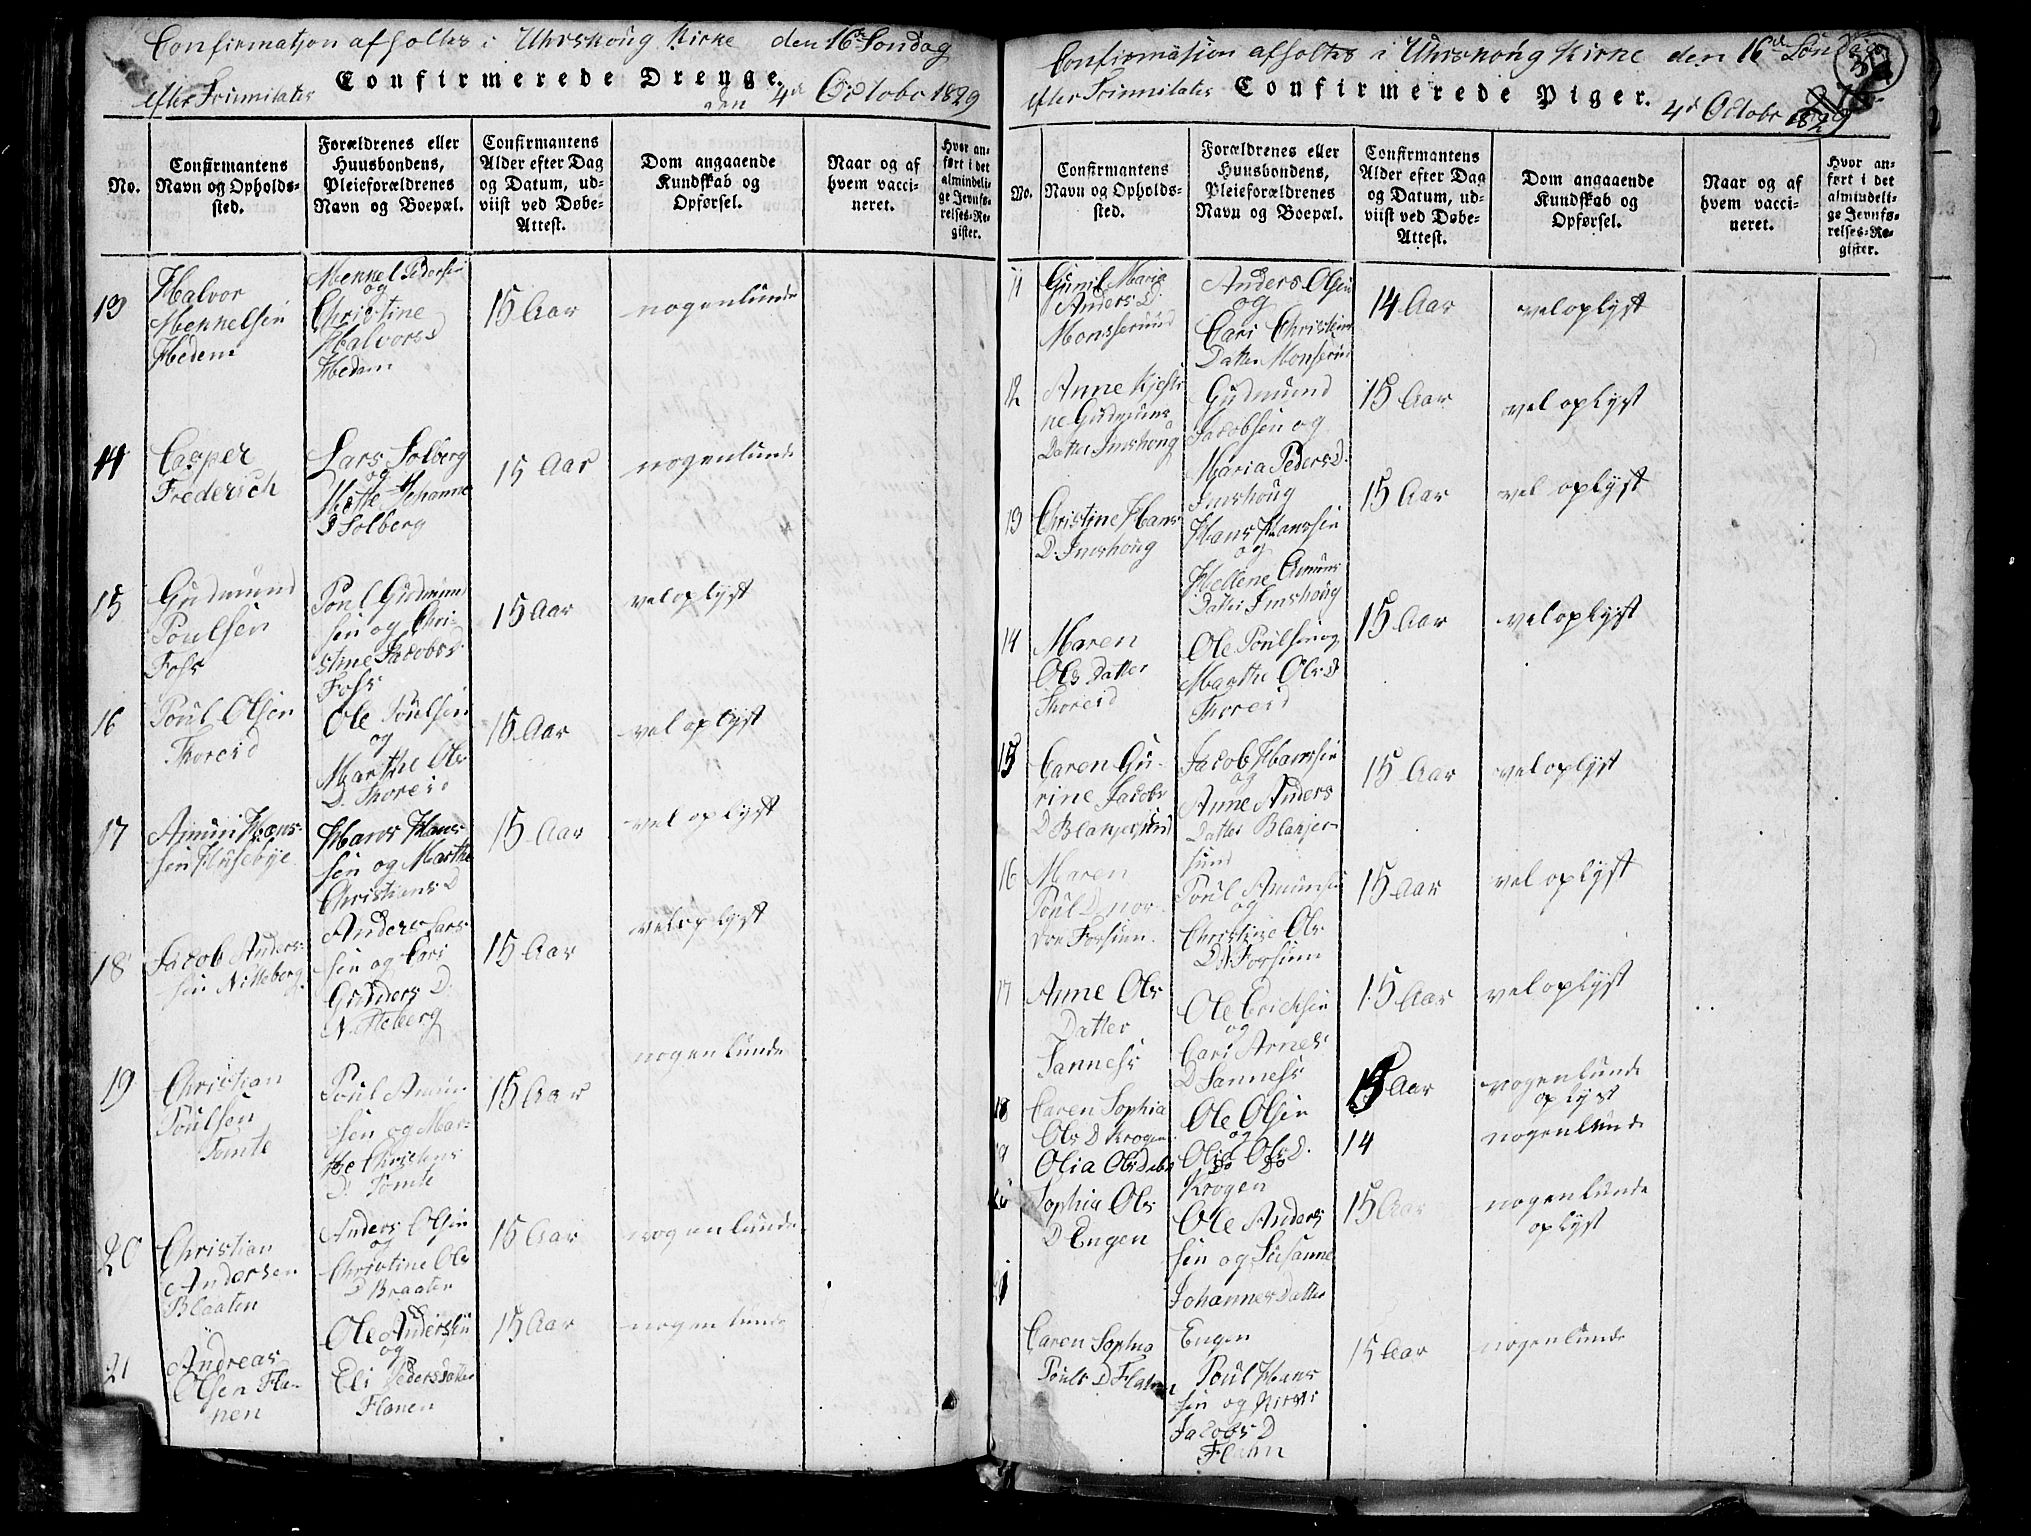 Confirmatjon afholtes i Uhrskoug Kirke den 16de Søndag
efter Trinnitates
Confirmerede Drenge.
den 4de Octobr 1829
No.
Confirmantens
Navn og Opholds-
sted.
Forældrenes eller
Huusbondens,
Pleieforældrenes
Navn og Boepæl.
Confirmantens
Alder efter Dag
og Datum, ud-
viist ved Døbe-
Attest.
Dom angaaende
Kundskab og
Opførsel.
Naar og af
hvem vacci-
neret.
Hvor an-
ført i det
almindeli-
ge Jevnfø-
relses-Re-
gister.
13
Halvor
Mekkelsen
Hedem
Mekkel Pedersen
og
Christine
Halvors D
Hedem
15 Aar
nogenlunde
14
Casper
Frederich
Lars Solberg
og
Mette Johanne
D Solberg
15 Aar
nogenlunde
15
Gudmund
Poulsen
Foss
Poul Gudmund
sen og Chri-
stine Jacobs D
Foss
15 Aar
vel oplyst
16
Poul Olsen
Thoreid
Ole Poulsen
og
Marthe Ols
D. Thoreid
15 Aar
vel oplyst
17
Amun Hans-
sen Husebye
Hans Hans
sen og Marthe
Christians D
15 Aar
vel oplyst
18
Jacob Anders-
sen Nitteberg
Anders Lars-
sen og Cari
Gunders D.
Nitteberg
15 Aar
vel oplyst
19
Christian
Poulsen
Tomte
Poul Amun
sen og Mar-
the Christens
D. Tomte
15 Aar
nogenlunde
20
Christian
Andersen
Blaaten
Anders Olsen
og
Christine Ols
D Braaten
15 Aar
nogenlunde
21
Andreas
Olsen Fla-
nen
Ole Andersen
og
Eli Pedersdatter
Flanen
15 Aar
nogenlunde
Confirmasjon afholtes i Uhrskoug Kirke den 16de Søndag
efter Trinnitates
Confirmerede Piger.
4de Octobr 1829
No.
Confirmantens
Navn og Opholds-
sted.
Forældrenes eller
Huusbondens,
Pleieforældrenes
Navn og Boepæl.
Confirmantens
Alder efter Dag
og Datum, ud-
viist ved Døbe-
Attest.
Dom angaaende
Kundskab og
Opførsel.
Naar og af
hvem vacci-
neret.
Hvor an-
ført i det
almindeli-
ge Jevnfø-
relses-Re-
gister.
11
Gunil Maria
Anders D.
Monserund
Anders Olsen
og
Cari Christians
Datter Monserud
14 Aar
vel oplyst
12
Anne Kjesti
ne Gudmuns
Datter Imshoug
Gudmund
Jacobsen og
Maria Peders D.
Imshoug
15 Aar
vel oplyst
13
Christine Hans
D. Imshoug
Hans Hanssen
og
Hellene Amuns
Datter Imshoug
15 Aar
vel oplyst
14
Maren
Ols Datter
Thoreid
Ole Poulsen og
Marthe Ols D
Thoreid
15 Aar
vel oplyst
15
Caren Gu-
rine Jacobs
D Blakjersund
Jacob Hanssen
og
Anne Anders
Datter Blakjer-
sund
15 Aar
vel oplyst
16
Maren
Poul D nor-
dre Forsuen.
Poul Amunsen
og
Christine Ols
D N Forsuen
15 Aar
vel oplyst
17
Anne Ols
Datter
Sanness
Ole Ericksen
og
Cari Arnes
D Sanness
15 Aar
vel oplyst
18
Caren Sophia
Ols D Krogen
Ole Olsen
og
Olia Ols D.
Krogen
15 Aar
nogenlunde
oplyst
19
Olia Ols Datter
Do Do
14
nogenlunde
20
Sophia Ols
D Engen
Ole Anders
sen og Susanne
Johannes Datter
Engen
15 Aar
nogenlunde
oplyst
21
Caren Sophia
Pouls D Flanen
Poul Hans
sen og Kirsti
Jacobs D
Flaten
15 Aar
nogenlunde